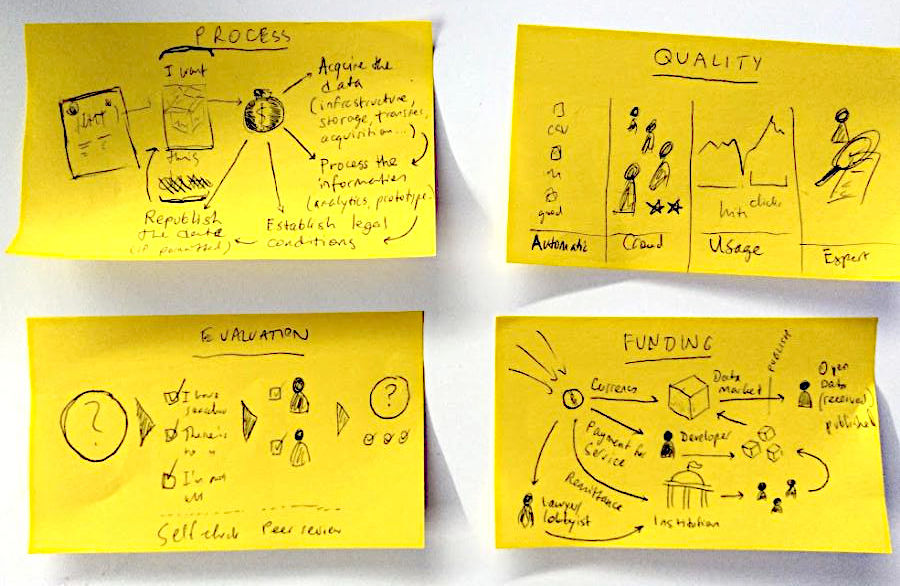 PROCESS
I want
this
$
Acquire the
data
(infrastructure,
storage, transfer,
acquisition...)
Process the
information
(analytics, prototype.
Establish legal
conditions
Republish
the data
(if permitted)
QUALITY
CSV
good
hits
clicks
Automatic
Crowd
Usage
Expert
EVALUATION
?
I have
There's
to
I'm not
?
Self check
Peer review
FUNDING
Currency
Data
Market
PUBLISH
Open
Data
(received)
published
Payment for
Service
Developer
Remittance
Institution
Lawyer/
lobbyist